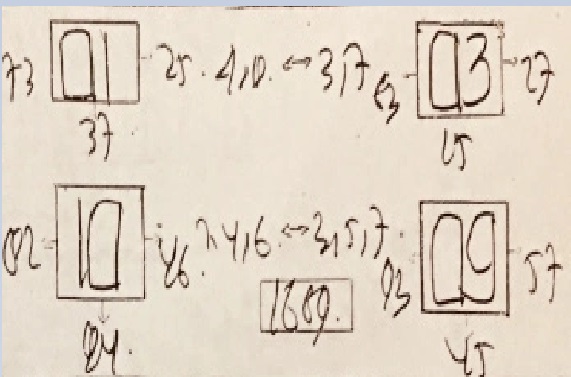 73 01 25. 4,0. ↔ 3,7 63 03 27
37 15
02 10 46. 24,6. ↔ 3,5,7. 93 09 57
1689.
84. 45